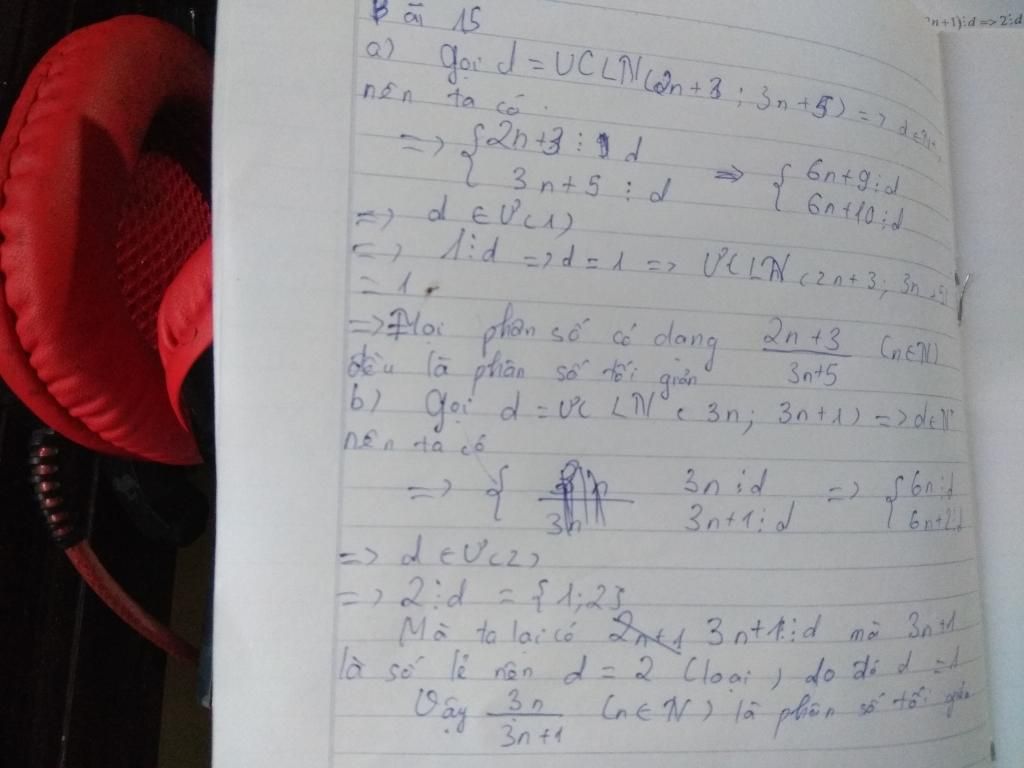 n+1)⋮d => 2⋮d
Bài 15
a) Gọi d = ƯCLN(2n+3; 3n+5) => d ∈ N*,
nên ta có
=> { 2n+3 ⋮ d => { 6n+9⋮d
3n+5 ⋮ d 6n+10⋮d
=> d ∈ Ư(1)
=> 1⋮d => d = 1 => ƯCLN(2n+3; 3n+5)
= 1
=> Mọi phân số có dạng 2n+3/3n+5 (n∈N)
đều là phân số tối giản
b) Gọi d = ƯCLN(3n; 3n+1) => d∈N
nên ta có
=> { 3n⋮d => { 6n⋮d
3n+1⋮d 6n+2⋮d
=> d ∈ Ư(2)
=> 2⋮d = {1;2}
Mà ta lại có 3n+1⋮d mà 3n+1
là số lẻ nên d = 2 (loại) do đó d = 1
Vậy 3n/3n+1 (n∈N) là phân số tối giản